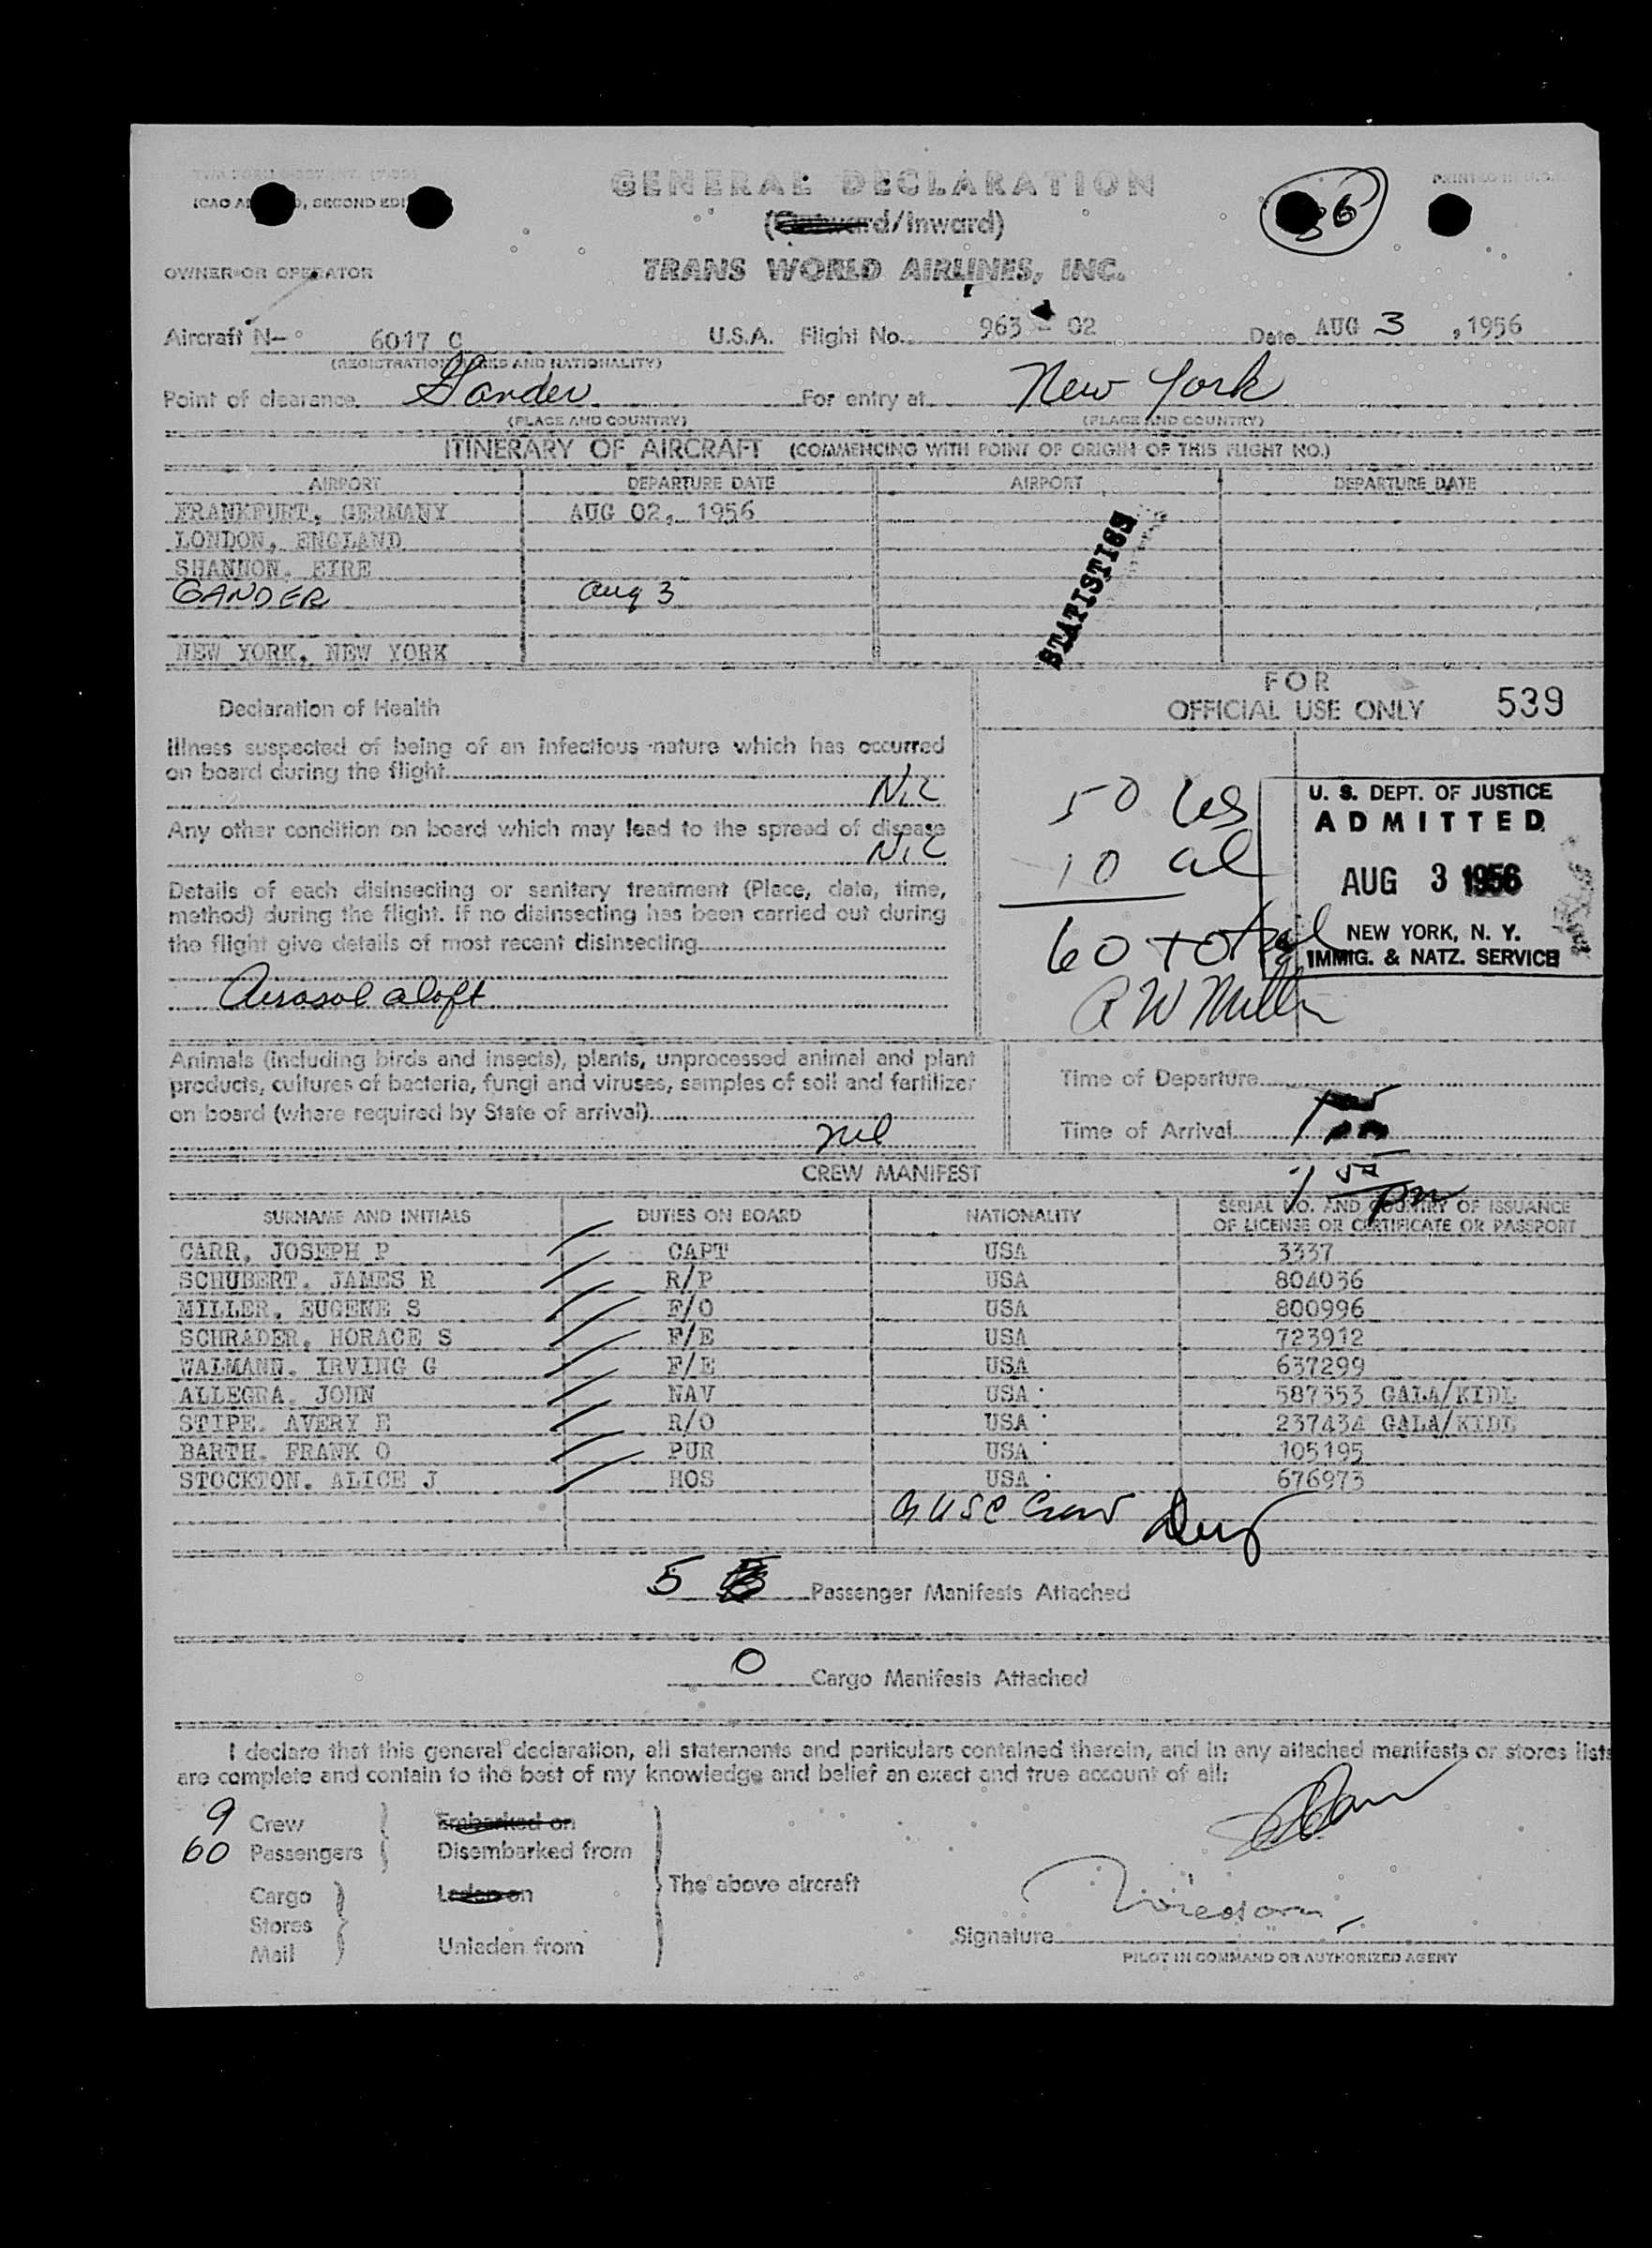 GENERAL DECLARATION
(Outward/Inward)
36
PRINTED IN U.S.A.
SECOND EDI
OWNER OR OPERATOR
TRANS WORLD AIRLINES, INC.
Aircraft N- 6017 C U.S.A. Flight No. 963 - 02 Date AUG 3, 1956
(REGISTRATION MARKS AND NATIONALITY)
Point of clearance Gander For entry at New York
(PLACE AND COUNTRY) (PLACE AND COUNTRY)
ITINERARY OF AIRCRAFT (COMMENCING WITH POINT OF ORIGIN OF THIS FLIGHT NO.)
AIRPORT DEPARTURE DATE AIRPORT DEPARTURE DATE
FRANKFURT, GERMANY AUG 02, 1956
LONDON, ENGLAND
SHANNON, EIRE
GANDER Aug 3
NEW YORK, NEW YORK
STATISTICS
FOR
OFFICIAL USE ONLY 539
Declaration of Health
Illness suspected of being of an infectious nature which has occurred
on board during the flight
NiL
Any other condition on board which may lead to the spread of disease
NiL
Details of each disinsecting or sanitary treatment (Place, date, time,
method) during the flight. If no disinsecting has been carried out during
the flight give details of most recent disinsecting
Aerosol aloft
50 US
10 al
60 total
U. S. DEPT. OF JUSTICE
ADMITTED
AUG 3 1956
NEW YORK, N. Y.
IMMIG. & NATZ. SERVICE
Animals (including birds and insects), plants, unprocessed animal and plant
products, cultures of bacteria, fungi and viruses, samples of soil and fertilizer
on board (where required by State of arrival)
nil
Time of Departure
Time of Arrival
1 55 pm
CREW MANIFEST
SURNAME AND INITIALS DUTIES ON BOARD NATIONALITY SERIAL NO. AND COUNTRY OF ISSUANCE
OF LICENSE OR CERTIFICATE OR PASSPORT
CARR, JOSEPH P CAPT USA 3337
SCHUBERT, JAMES R R/P USA 804036
MILLER, EUGENE S F/O USA 800996
SCHRADER, HORACE S F/E USA 723912
WALMANN, IRVING G F/E USA 637299
ALLEGRA, JOHN NAV USA 587353 GALA/KIDL
STIPE, AVERY E R/O USA 237434 GALA/KIDL
BARTH, FRANK O PUR USA 105195
STOCKTON, ALICE J HOS USA 676973
9 USC Crew
5 Passenger Manifests Attached
0 Cargo Manifests Attached
I declare that this general declaration, all statements and particulars contained therein, and in any attached manifests or stores lists
are complete and contain to the best of my knowledge and belief an exact and true account of all:
9 Crew Embarked on
60 Passengers Disembarked from
The above aircraft
Cargo Laden on
Stores
Mail Unladen from
Signature
PILOT IN COMMAND OR AUTHORIZED AGENT